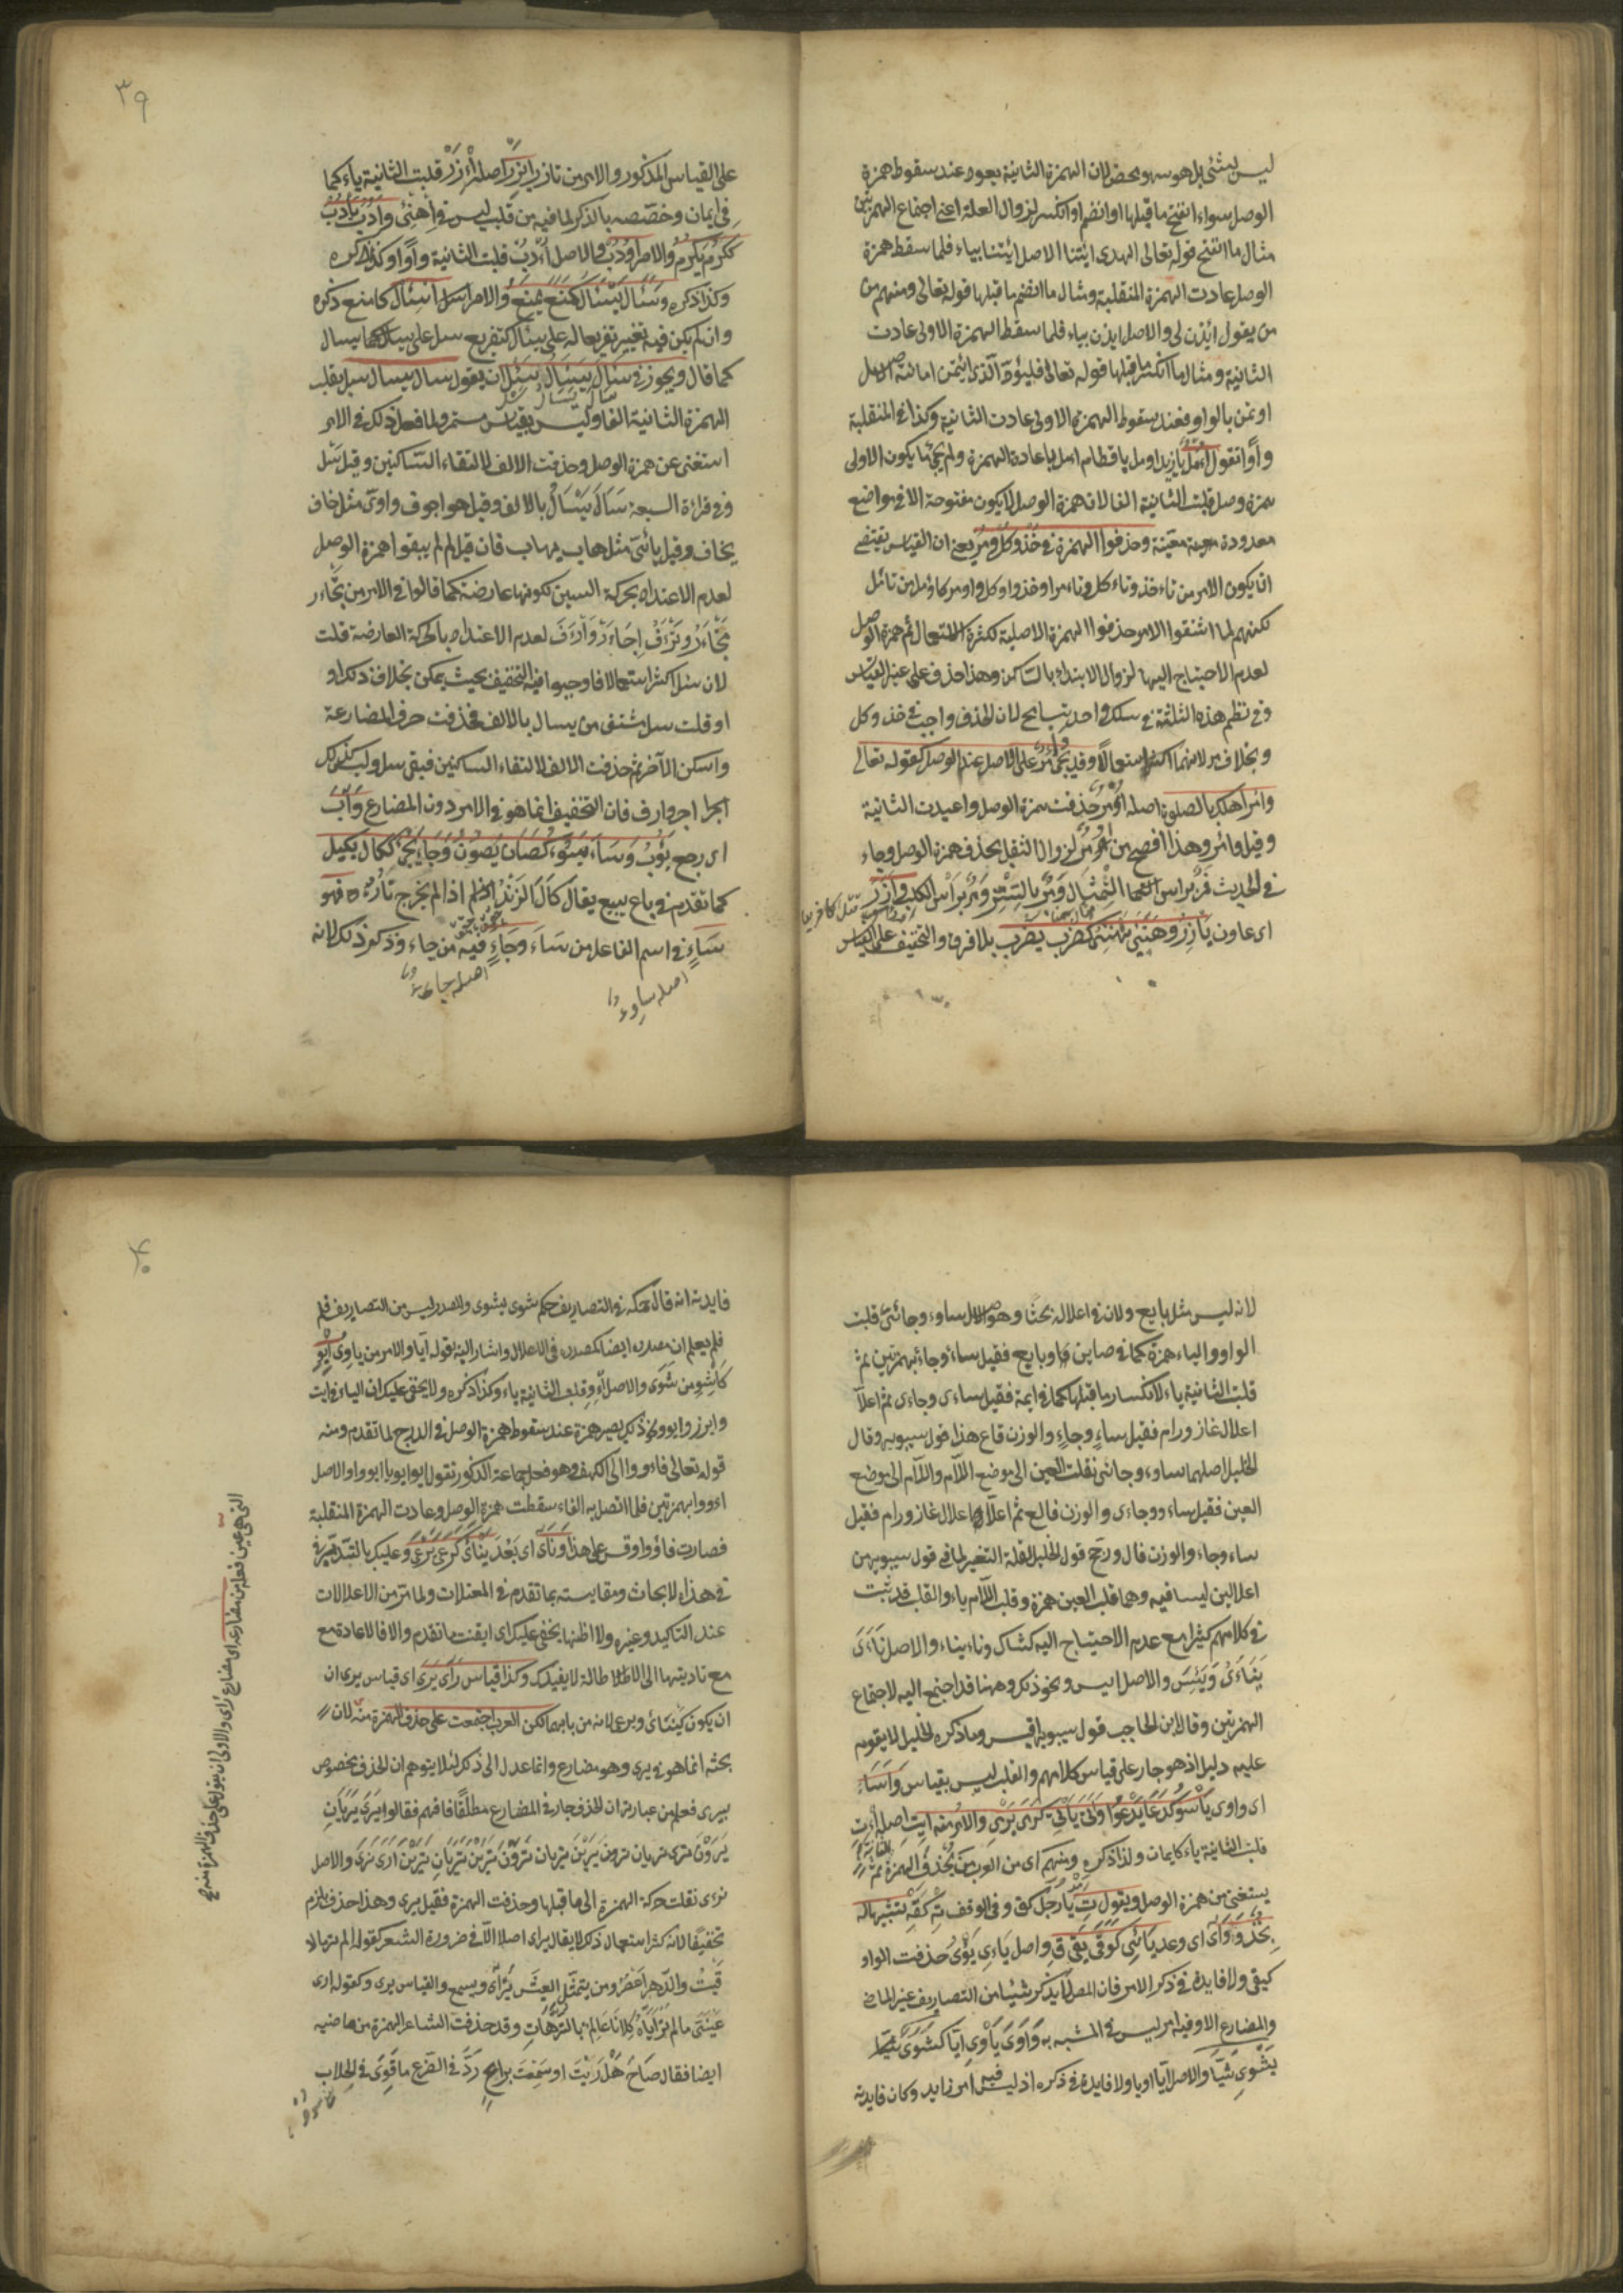 ليس بشئ بل هو سهو محض لان الهمزة الثانية يعود عند سقوط همزة
الوصل سواء انفتح ما قبلها او انضم او انكسر لزوال العلة اعنى اجتماع الهمزتين
مثال ما انفتح قوله تعالى الهدى ائتنا الاصل ايتنا بياء فلما سقط همزة
الوصل عادت الهمزة المنقلبة ومثال ما انضم ما قبلها قوله تعالى ومنهم من
من يقول ائذن لى والاصل ايذن بياء فلما سقط الهمزة الاولى عادت
الثانية ومثال ما انكسر ما قبلها قوله تعالى فليؤد الذى ائتمن امانته الاصل
اوتمن بالواو فعند سقوط الهمزة الاولى عادت الثانية وكذا فى المنقلبة
واوًا تقول اومل يا زيد اومل يا قطام امل باعادة الهمزة ولم يجئ ما يكون الاولى
همزة وصل قلبت الثانية الفا لان همزة الوصل لا يكون مفتوحة الا فى مواضع
معدودة معينة وحذفوا الهمزة فى خذ وكل ومر يعنى ان القياس يقتضى
ان يكون الامر من تأخذ وتاءكل وتاءمر اوخذ واوكل واومر كاومل من تائل
لكنهم لما اشتقوا الامر حذفوا الهمزة الاصلية لكثرة الاستعمال ثم همزة الوصل
لعدم الاحتياج اليها لزوال الابتداء بالساكن وهذا حذف على غير القياس
وفى نظم هذه الثلثة فى سلك واحد تسامح لان الحذف واجب فى خذ وكل
وبخلاف مر لانهما اكثر استعمالا وقد يجئ مر على الاصل عند الوصل كقوله تعالى
وامر اهلك بالصلوة اصله اومر حذفت همزة الوصل واعيدت الثانية
وقيل وائمر وهذا افصح من مر لزوال الثقل بحذف همزة الوصل وجاء
فى الحديث فمر براس التمثال ومر بالستر ومر براس الكلب وازر
اى عاون يازر وهنئ يهنئ كضرب يضرب بلا فرق والتخفيف على القياس
٣٩
على القياس المذكور والامر من تازر ايزر اصله اءزر قلبت الثانية ياء كما
فى ايمان وخصصه بالذكر لما فيه من قلب ليس فى اهنئ وادب يادب
ككرم يكرم والامر اودب والاصل اءدب قلبت الثانية واوًا وكذا ذكره
وكذا ذكره وسئال يسئال كمنع يمنع والامر اسئال كامنع ذكره
وان لم يكن فيه تغيير تفريعا له على يسئال كتفريع سل على يسال كما يسال
كما قال ويجوز فى سئال يسئال اسئل ان يقول سال يسال سل بقلب
الهمزة الثانية الفا وليس بقياس مستمر ولما فعل ذلك فى الامر
استغنى عن همزة الوصل وحذفت الالف لالتقاء الساكنين وقيل سل
وفى قراءة السبعة سال يسال بالالف وقيل هو اجوف واوى مثل خاف
يخاف وقيل يائى مثل هاب يهاب فان قيل لم لم يبقوا همزة الوصل
لعدم الاعتداد بحركة السين لكونها عارضة كما قالوا فى الامر من تجاءر
تجاءر وتراف اجاءر واراف لعدم الاعتداد بالحركة العارضة قلت
لان سل اكثر استعمالا فاوجبوا فيه التخفيف بحيث يمكن بخلاف ذلك او
او قلت سل مشتق من يسال بالالف فحذفت حرف المضارعة
واسكن الآخر ثم حذفت الالف لالتقاء الساكنين فبقى سل وليس كذلك
اجر ارف فان التخفيف انما هو فى الامر دون المضارع واب
اى رجع يؤب وساء يسوء كصان يصون وجاء يجئ ككال يكيل
كما تقدم فى باع يبيع يقال كال الزند اذا لم يخرج ناره فهو
ساء فى اسم الفاعل من ساء وجاء فيه من جاء وذكر ذلك لانه
اصله ساوء
اصله جاىء
لانه ليس مثل بايع ولان فى اعلاله بحثا وهو الاصل ساوء وجائى قلبت
الواو والياء همزة كما فى صاين وبايع فقيل ساء وجاء بهمزتين ثم
قلبت الثانية ياء لانكسار ما قبلها كما فى ايمة فقيل ساءى وجاءى ثم اعلا
اعلال غاز ورام فقيل ساء وجاء والوزن فاع هذا قول سيبويه وقال
الخليل اصلهما ساوء وجائى نقلت العين الى موضع اللام واللام الى موضع
العين فقيل ساءو وجاءى والوزن فالع ثم اعلا اعلال غاز ورام فقيل
ساء وجاء والوزن فال ورجح قول الخليل لقلة التغير لما فى قول سيبويه من
اعلالين ليسا فيه وهما قلب العين همزة وقلب اللام ياء والقلب قد ثبت
فى كلامهم كثيرا مع عدم الاحتياج اليه كشاك وناء يناء والاصل ناءى
يناءى ويئس والاصل ايس ونحو ذلك وههنا قد احتيج اليه لاجتماع
الهمزتين وقال ابن الحاجب قول سيبويه اقيس وما ذكره الخليل لا يقوم
عليه دليل اذ هو جار على قياس كلامهم والقلب ليس بقياس واساء
اى داوى ياسو كدعا يدعو واتى ياتى كرمى يرمى والامر منه ايت اصله اءت
قلبت الثانية ياء كايمان ولذا ذكره ومنهم اى من العرب من يحذف الهمزة ثم
يستغنى عن همزة الوصل ويقول ت يا رجل كق وفى الوقف ته كقه تشبيها له
بخذ وواى اى وعد يائى كوقى يقى ق واصل ياءى يوئى حذفت الواو
كيقى ولا فايدة فى ذكر الامر فان المص لا يذكر شيئا من التصاريف غير الماضى
والمضارع الا وفيه امر ليس فى المشبه به واوى ياوى ايا كشوى
يشوى شيا والاصل ايا اويا ولا فايدة فى ذكره اذ ليس فيه امر زايد وكان فايدته
٤٠
فايدته انه قال حكمه فى التصاريف حكم شوى يشوى والمصدر ليس من التصاريف فلم
فلم يعلم ان مصدره ايضا كمصدره فى الاعلال واشار اليه بقوله ايا والامر من ياوى ايو
كاشو من تشوى والاصل اءو وقلبت الثانية ياء وكذا ذكره ولا يخفى عليك ان الياء فى ايت
وايزر وايو ونحو ذلك يصير همزة عند سقوط همزة الوصل فى الدرج لما تقدم ومنه
قوله تعالى فاءووا الى الكهف وهو فعل جماعة الذكور تقول ايو ايويا ايووا والاصل
اءووا بهمزتين فلما اتصل به الفاء سقطت همزة الوصل وعادت الهمزة المنقلبة
فصارت فاؤوا وقس على هذا وناى اى بعد يناى كرعى يرعى وعليك بالتدبر
فى هذه الابحاث ومقايسته بما تقدم فى المعتلات ولما مر من الاعلالات
عند التاكيد وغيره ولا اظنها يخفى عليك ان اتقنت ما تقدم والا فالاعادة مع
مع تاديتها الى الاطالة لا يفيدك وكذا قياس راى يرى اى قياس يرى ان
ان يكون كينائ ويرعى لانه من بابهما لكن العرب اجتمعت على حذف الهمزة منه لان
بحثه انما هو فى يرى وهو مضارع وانما عدل الى ذلك لئلا يتوهم ان الحذف مخصوص
بيرى فعلم من عبارته ان الحذف جار فى المضارع مطلقا فافهم فقالوا يرى يريان
يرون ترى تريان ترون يرين تريان ترون ترين تريان ترين ارى نرى والاصل
نراى نقلت حركة الهمزة الى ما قبلها وحذفت الهمزة فقيل يرى وهذا حذف يلزم
تخفيفا لانه كثر استعمال ذلك لا يقال يراى اصلا الا فى ضرورة الشعر كقوله الم تر ما لا
قيت والدهر اعصر ومن يتمل العيش يراى ويسمع والقياس يرى وكقوله ارى
عينى ما لم تراياه كلانا عالم بالترهات وقد حذفت الشاعر الهمزة من ماضيه
ايضا فقال صاح هل ريت او سمعت براع رد فى الضرع ما قرى فى الحلاب